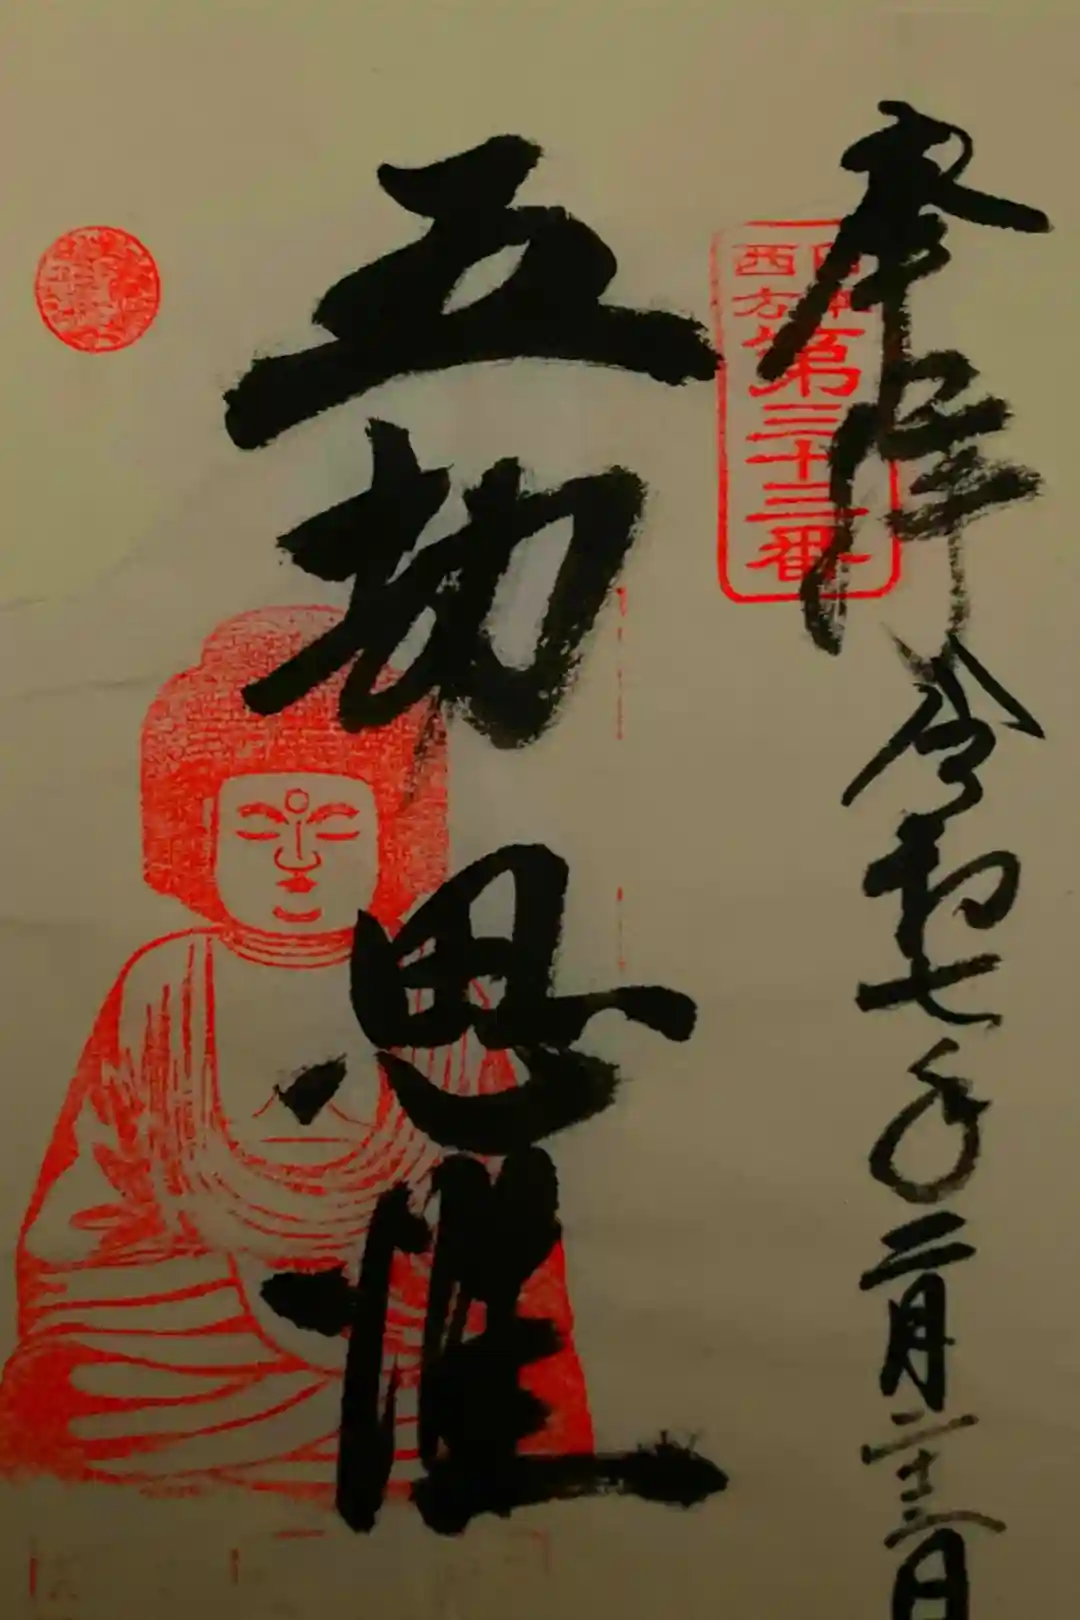 奉拝 令和七年二月二十三日
西方
第三十三番
五劫思惟